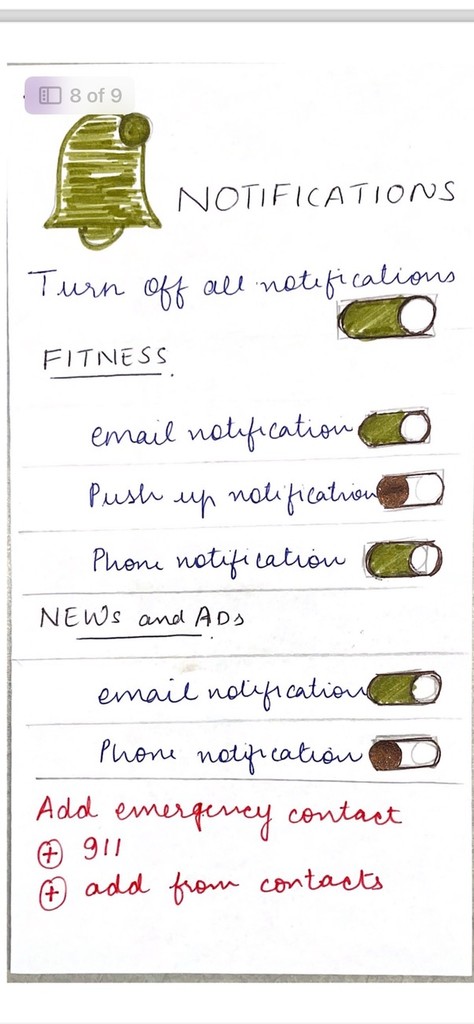 8 of 9
NOTIFICATIONS
Turn off all notifications
FITNESS.
email notification
Push up notification
Phone notification
NEWs and ADs
email notification
Phone notification
Add emergency contact
+ 911
+ add from contacts